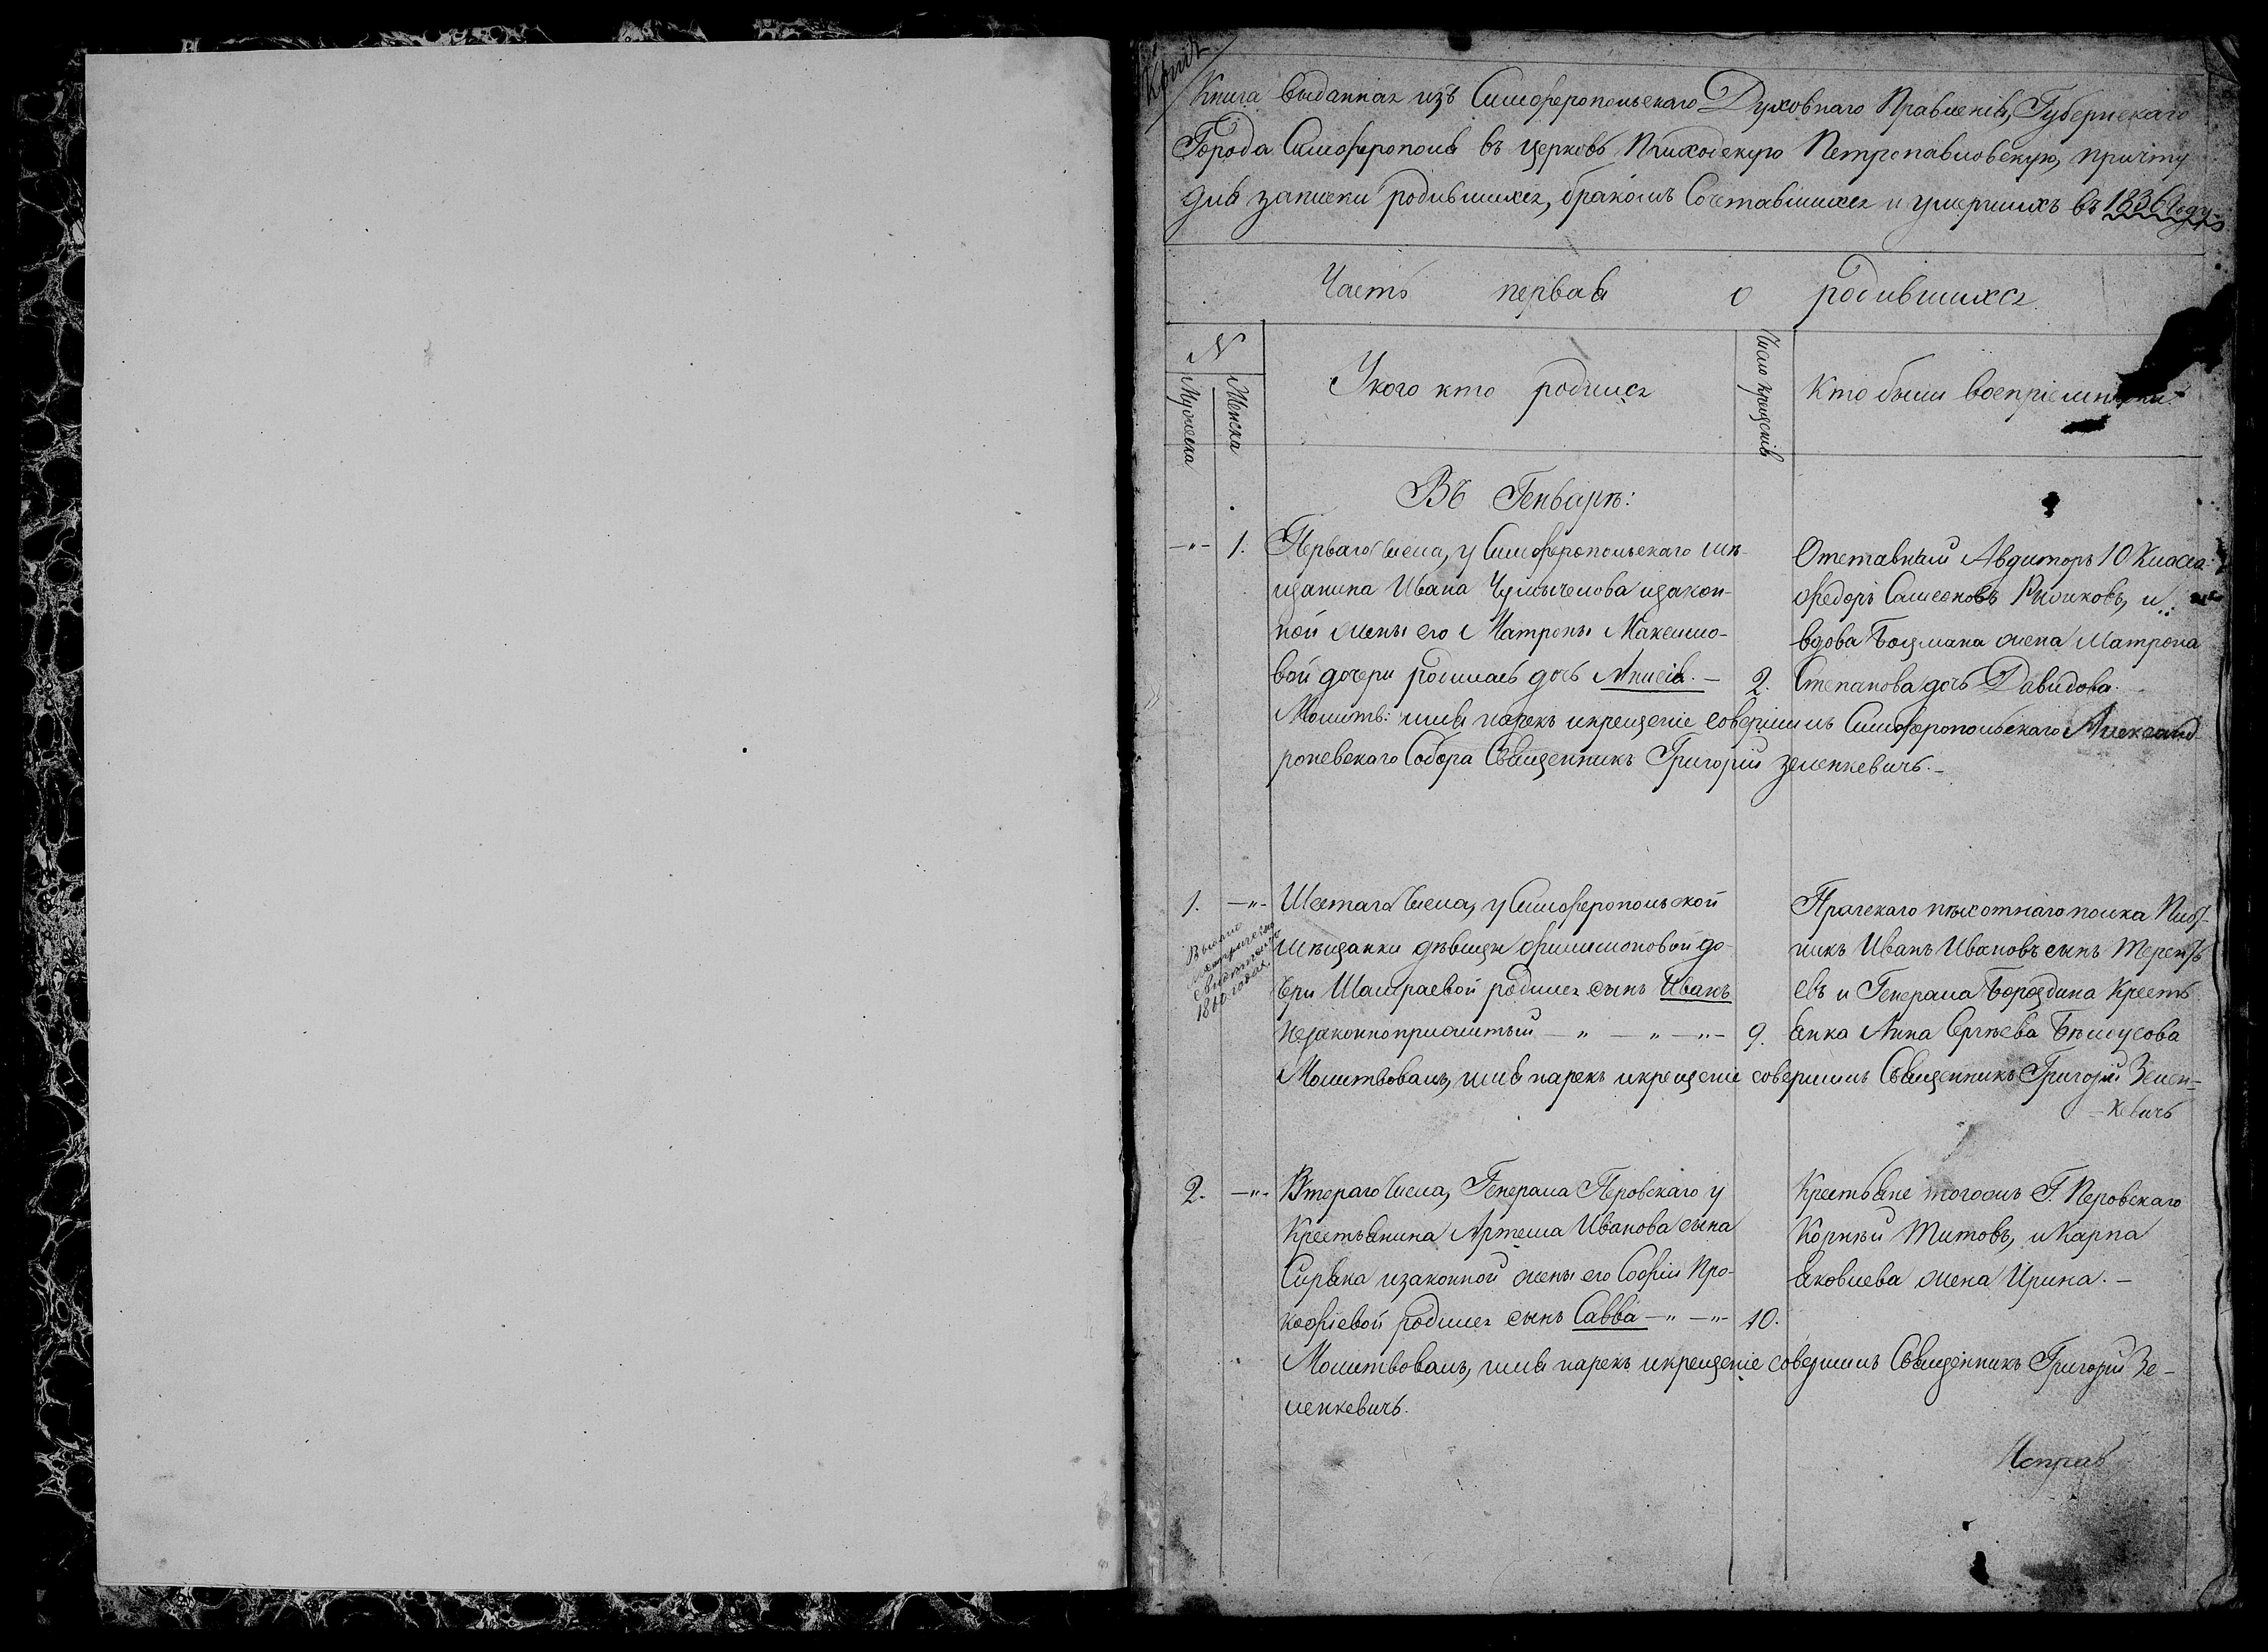 Копія
Книга выданная изъ Симферопольскаго Духовнаго Правленія, Губернскаго
Города Симферополя въ церковь Приходскую Петропавловскую, причту
для записки родившихся, бракомъ Сочетавшихся и умершихъ въ 1836 Году.
Часть первая о родившихся
N
Мужеска
Женска
У кого кто родился
Число крещенія
Кто были воспріемники
Въ Генварѣ:
—"— 1. Перваго Числа, у Симферопольскаго мѣ-
щанина Ивана изакон-
ной жены его Матроны Максимо-
вой дочери родилась дочь Анисія. — 2.
Отставный Авдиторъ 10 Класса
Федоръ Самсоновъ и
вдова Боцмана жена Матрона
Степанова дочь Давидова.
Молитв: имя нарекъ икрещеніе совершилъ Симферопольскаго Александ-
роневскаго Собора Священникъ Григорій Зеленкевичъ.—
1. —"— Шестаго Числа, у Симферопольской
мѣщанки дѣвицы Филимоновой до-
чери родился сынъ Иванъ
незаконноприжитый —"—"—"— 9.
Выдано
метрическо
свидетельство
1860 года
Пражскаго пѣхотнаго полка
Иванъ Ивановъ сынъ Терентъ
евъ и Генерала Бороздина Кресть
янка Анна Сергѣева Бѣлоусова
Молитвовалъ, имя нарекъ икрещеніе совершилъ Священникъ Григорій Зелен-
-кевичъ
2. —"— Втораго Числа, Генерала Перовскаго у
Крестьянина Артема Иванова сына
Сиряка изаконной жены его Софіи Про-
кофіевой родился сынъ Савва —"—"— 10.
Крестьяне тогожъ Г. Перовскаго
Корнѣй Титовъ, и Карпа
Яковлева жена Ирина. —
Молитвовалъ, имя нарекъ икрещеніе совершилъ Священникъ Григорій Зе-
ленкевичъ.